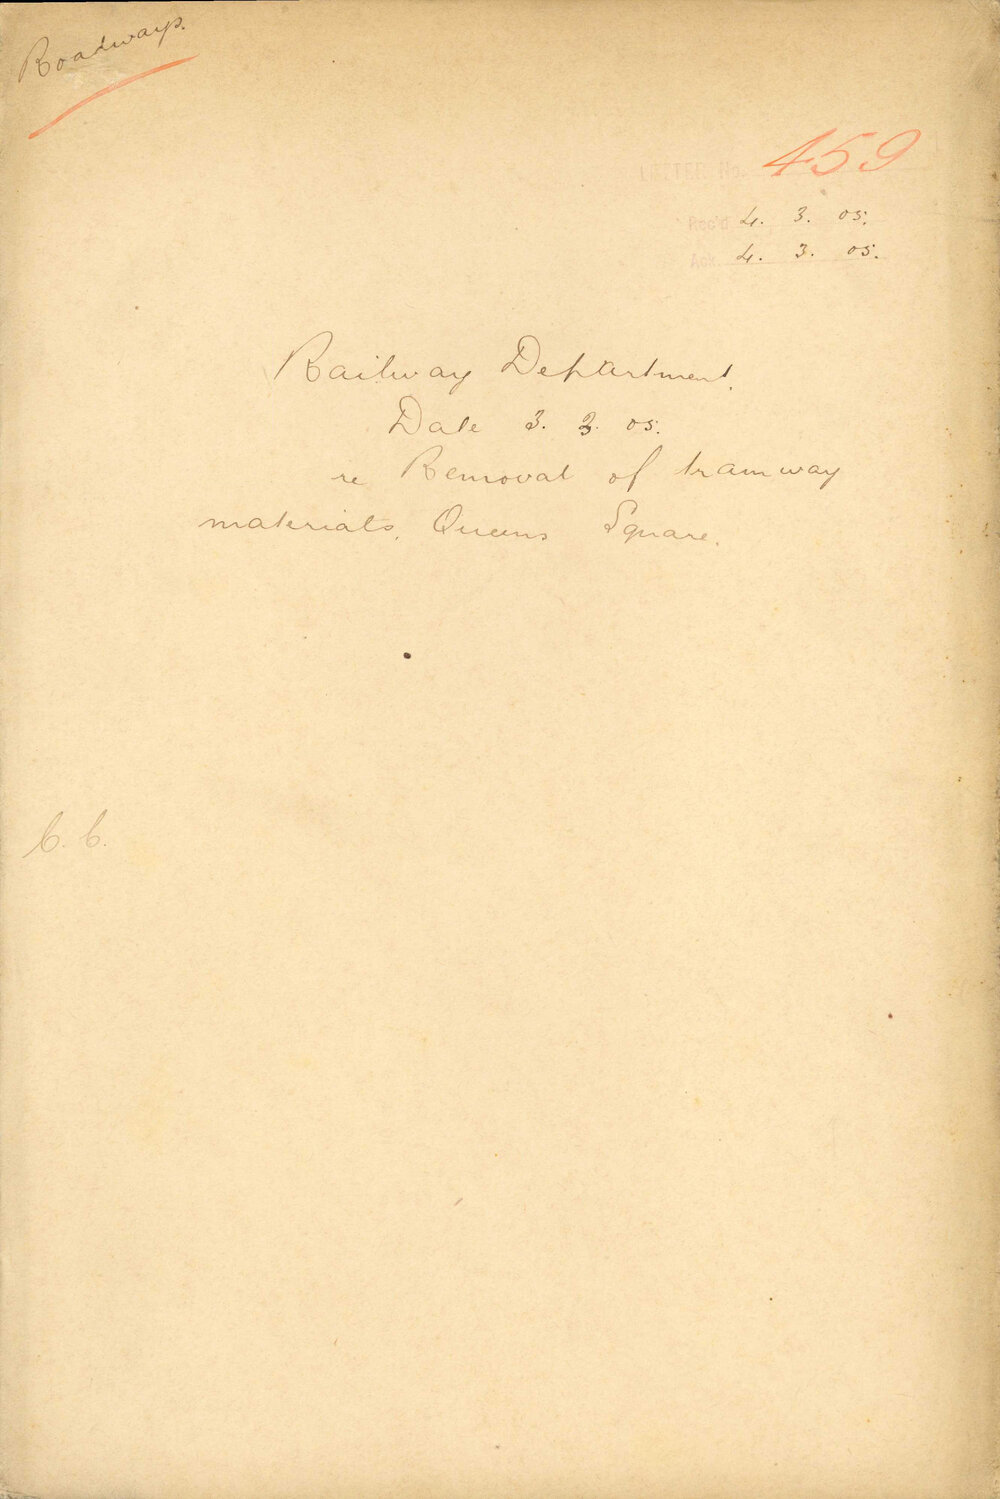 Roadways.
LETTER No. 459
Rec'd 4. 3. 05.
Ack 4. 3. 05.
Railway Department.
Date 3. 3. 05.
re Removal of tramway
materials, Queens Square.
C. C.